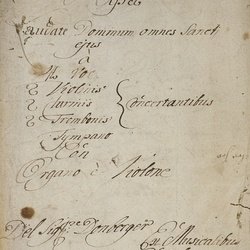 Laudate Dominum omnes Sanct
ejus
a
4 Voc:
2 Violinis
2 Clarinis
2 Trombonis
Concertantibus
Tympano
Con
Organo è Violone
Del Sig:re Donberger
Ex Musicalibus